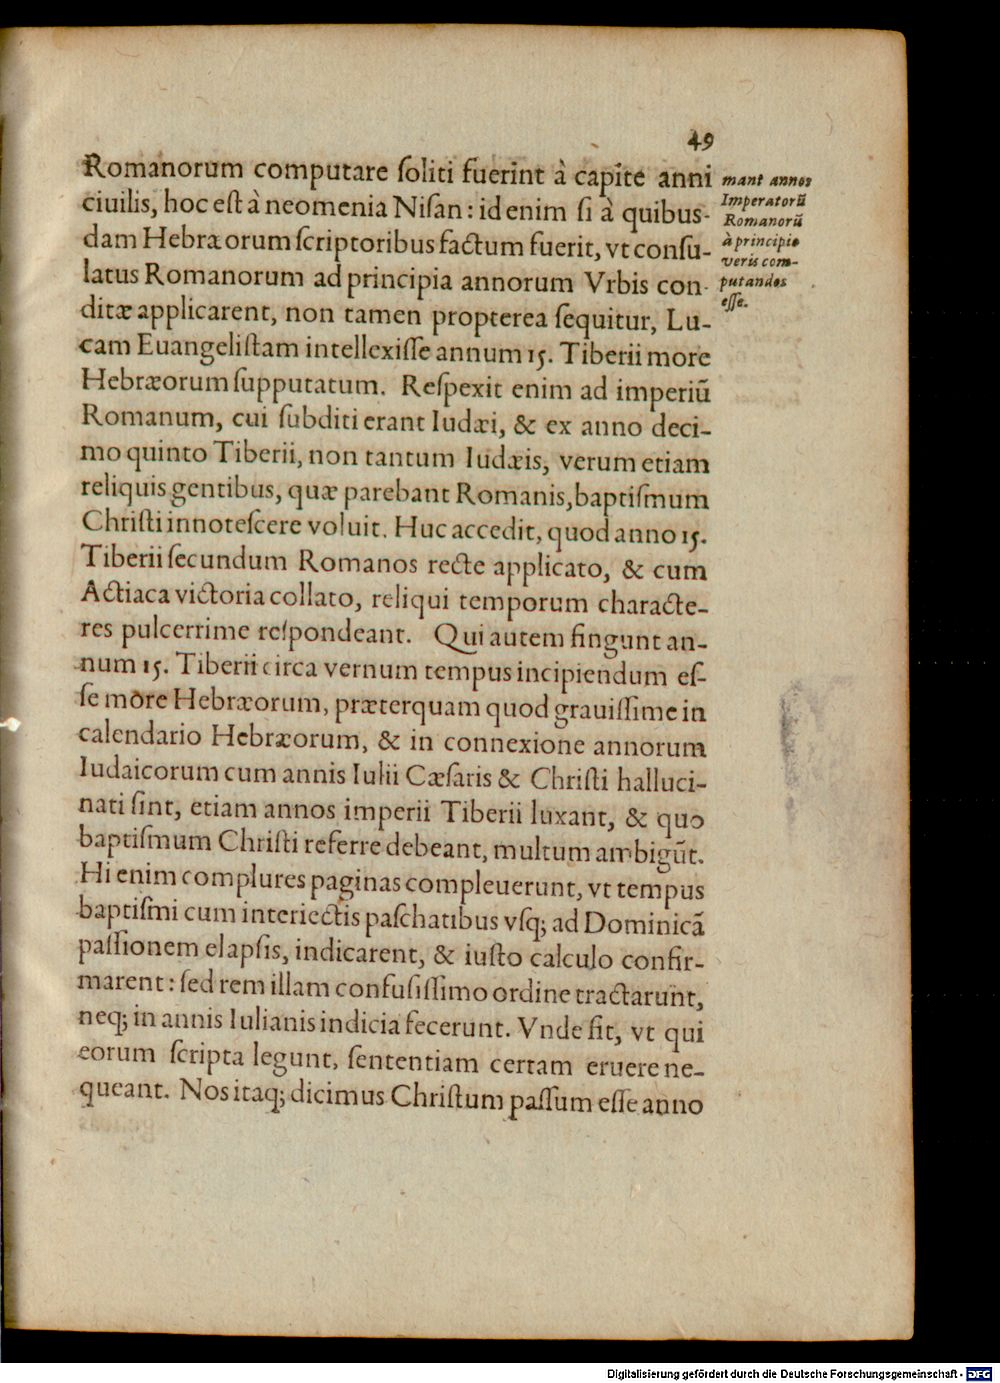 49
Romanorum computare ſoliti fuerint à capite anni
ciuilis, hoc eſt à neomenia Niſan: id enim ſi à quibus-
dam Hebræorum ſcriptoribus factum fuerit, vt conſu-
latus Romanorum ad principia annorum Vrbis con-
ditæ applicarent, non tamen propterea ſequitur, Lu-
cam Euangeliſtam intellexiſſe annum 15. Tiberii more
Hebræorum ſupputatum. Reſpexit enim ad imperiū
Romanum, cui ſubditi erant Iudæi, & ex anno deci-
mo quinto Tiberii, non tantum Iudæis, verum etiam
reliquis gentibus, quæ parebant Romanis, baptiſmum
Chriſti innoteſcere voluit. Huc accedit, quod anno 15.
Tiberii ſecundum Romanos recte applicato, & cum
Actiaca victoria collato, reliqui temporum characte-
res pulcerrime reſpondeant. Qui autem fingunt an-
num 15. Tiberii circa vernum tempus incipiendum eſ-
ſe more Hebræorum, præterquam quod grauiſſime in
calendario Hebræorum, & in connexione annorum
Iudaicorum cum annis Iulii Cæſaris & Chriſti halluci-
nati ſint, etiam annos imperii Tiberii luxant, & quo
baptiſmum Chriſti referre debeant, multum ambigūt.
Hi enim complures paginas compleuerunt, vt tempus
baptiſmi cum interiectis paſchatibus vſq; ad Dominicā
paſſionem elapſis, indicarent, & iuſto calculo confir-
marent: ſed rem illam confuſiſſimo ordine tractarunt,
neq; in annis Iulianis indicia fecerunt. Vnde fit, vt qui
eorum ſcripta legunt, ſententiam certam eruere ne-
queant. Nos itaq; dicimus Chriſtum paſſum eſſe anno
mant annos
Imperatorū
Romanorū
à principio
veris com-
putandos
eſſe.
Digitalisierung gefördert durch die Deutsche Forschungsgemeinschaft - DFG